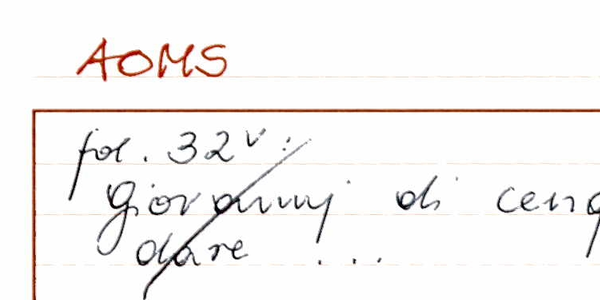 AOMS
fol. 32v:
giovannj di
dare ...